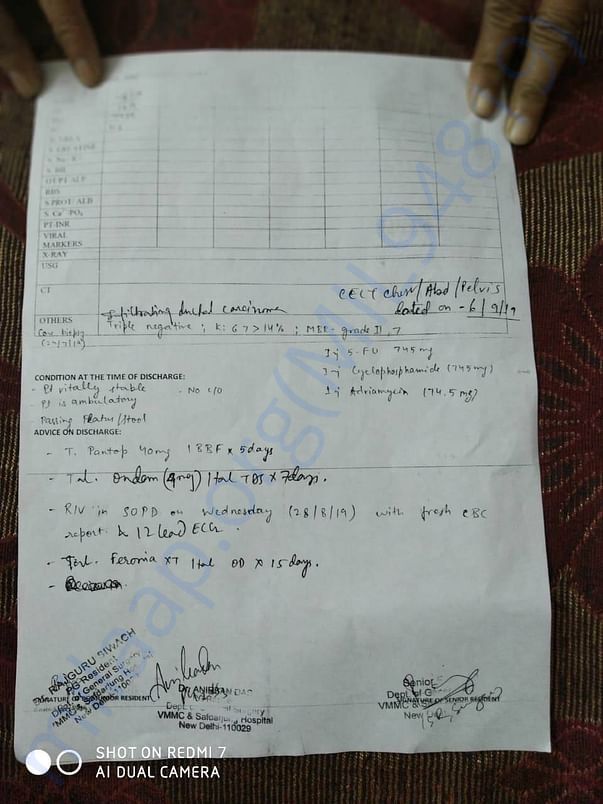 S UREA
S CREATININE
S Na+ K+
S BIL
OT/PT ALP
RBS
S PROT ALB
S Ca++ PO4
PT-INR
VIRAL
MARKERS
X-RAY
USG
CT
CECT Chest/Abd/Pelvis
dated on - 6/9/19
OTHERS
Infiltrating ductal carcinoma
Core biopsy
Triple negative ; Ki 67 > 14% ; MBR - grade II, 7
Inj 5-FU 745 mg
Inj Cyclophosphamide (745 mg)
Inj Adriamycin (74.5 mg)
CONDITION AT THE TIME OF DISCHARGE:
- Pt vitally stable - No c/o
- Pt is ambulatory
- Passing Flatus/Stool
ADVICE ON DISCHARGE:
- T. Pantop 40mg 1 BBF x 5days
- Tab. Ondem (4mg) 1 tab TDS x 7days.
- R/V in SOPD on Wednesday (28/8/19) with fresh CBC
report & 12 lead ECG.
- Tab. Feronia XT 1 tab OD x 15 days.
RAJGURU SIWACH
PG Resident
General Surgery
VMMC & Safdarjung
New Delhi-1100
SIGNATURE OF JUNIOR RESIDENT
Dr. ANIRBAN DAS
Dept. Surgery
VMMC & Safdarjung Hospital
New Delhi-110029
Senior
Dept. of G
SIGNATURE OF SENIOR RESIDENT
VMMC & S
New
milaap.org(MIL948
SHOT ON REDMI 7
AI DUAL CAMERA